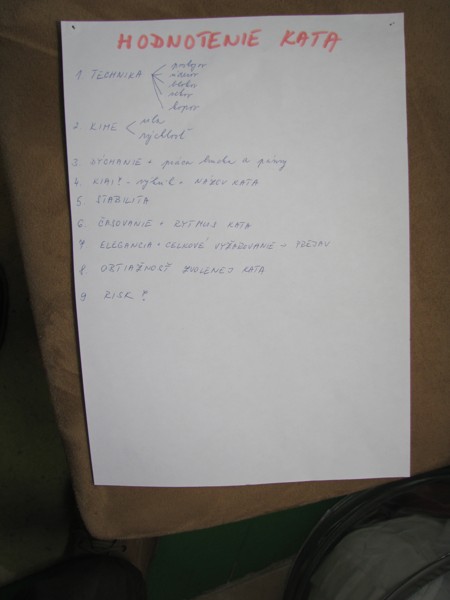 HODNOTENIE KATA
1. TECHNIKA
postojov
úderov
blokov
sekov
kopov
2. KIME
sila
rýchlosť
3. DÝCHANIE + práca brucha a panvy
4. KIAI! - výkrik + NÁZOV KATA
5 STABILITA
6 ČASOVANIE + RYTMUS KATA
7 ELEGANCIA + CELKOVÉ VYŽAROVANIE - PREJAV
8. OBTIAŽNOSŤ ZVOLENEJ KATA
9 RISK ?